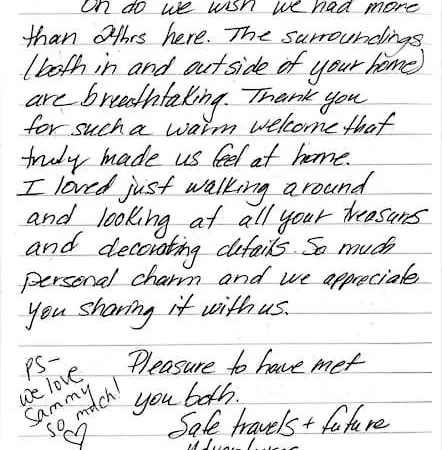 Oh do we wish we had more
than 24hrs here. The surroundings
(both in and outside of your home)
are breathtaking. Thank you
for such a warm welcome that
truly made us feel at home.
I loved just walking around
and looking at all your treasures
and decorating details. So much
personal charm and we appreciate
you sharing it with us.
Pleasure to have met
you both.
Safe travels + future
Adventures
PS-
we love
Sammy
so much!
♡